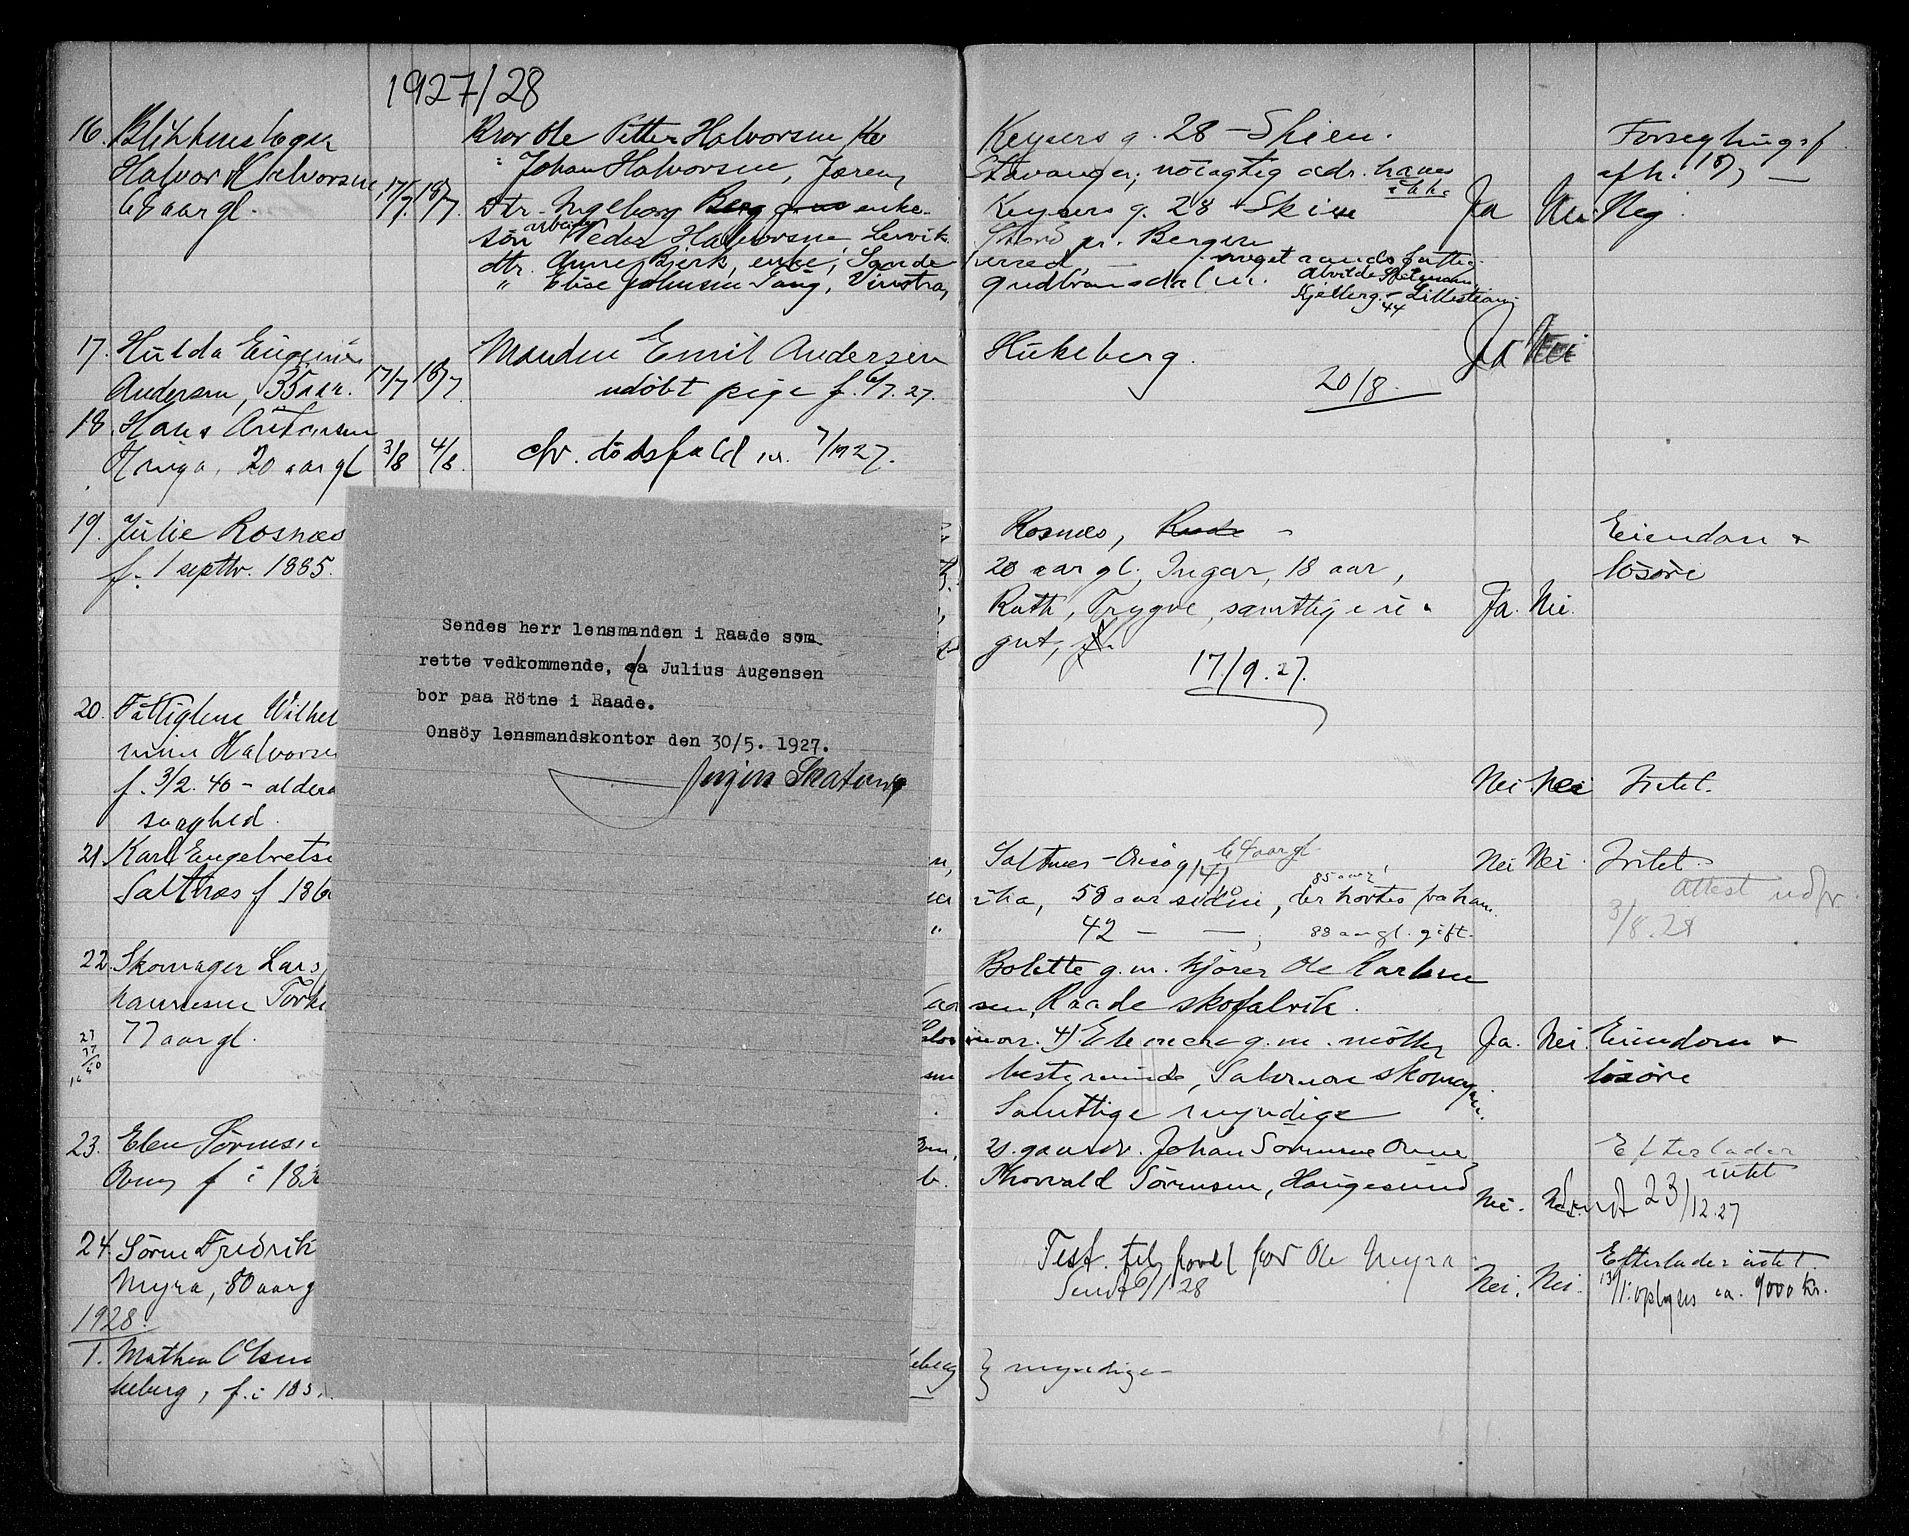 1927/28
16. Blikkenslager
Halvor Halvorsen, 17/7 18/7
68 aar gl.
Bror Ole Petter Halvorsen
" Johan Halvorsen, Jæren,
dtr. Ingeborg Berg enke.
søn arbeider Peder Halvorsen Lervik
dtr. Anne Bjerk, enke, Sande
" Elise Johnsen Vang, Vinstra,
Keysers g. 28 - Skien.
Stavanger, nöiagtig adr. haves ikke
Keysers g. 28 Skien Ja Nei Nej.
Stord pr. Bergen
Gudbransdalen.
Kjelberg - Lillestrøm
44
Forseglingsf.
afh. 18/7 —
17. Hulda Eugenie
Andersen, 35 aar. 17/7 18/7
Manden Emil Andersen
udöbt pige f. 6/7. 27.
Hukeberg. Ja Nei
20/8.
18. Hans Antonsen
Hauga, 20 aar gl 3/8 4/8.
cfr. dödsfald nr. 7/1927.
19. Julie Rosnæs
f. 1 septbr. 1885.
Rosnæs, Raade -
20 aar gl. Ingar, 18 aar,
Ruth, Trygve, samtlige u
gut,
17/9. 27.
Ja. Nei.
Eiendom +
lösöre
Sendes herr lensmanden i Raade som
rette vedkommende, da Julius Augensen
bor paa Rötne i Raade.
Onsöy lensmandskontor den 30/5. 1927.
20. Fattiglem Wilhel
mine Halvorse
f. 3/2. 40 - aldera
svaghed.
Nei Nei Intet.
21 Karl Engelbretse
Saltnæs f 186
Saltnes - Onsöy 64 aar gl
58 aar siden, der hørtes fra ham. 85 aar
42 — — , 88 aar gl. gift.
Nei Nei. Intet.
Attest udf.
3/8. 28
22. Skomager Lars
hannesen Tork
77 aar gl.
Bolette g. m. kjører Ole Karlsen
sen, Raade skofabrik.
4) Elenore g. m. mölle
bestyrende, Salomon skomager.
Samtlige myndige
Ja. Nei. Eiendom +
lösöre
23. Elen Sørens
Oven f i 183
gaardbr. Johan Sørensen Oven
Thorvald Sørensen, Haugesund
Nei. Nei.
Efterlader
intet
Sendt 23/12. 27
24. Søren Fredrik
Myra, 80 aar g
Test. til fordel for Ole Myra
Sendt 9/1 28
Nei. Nei.
Efterlader intet.
13/1. oplyses ca. 9000 kr.
1928.
1. Mathea Olsen
keberg, f. i 185
keberg } myndige -